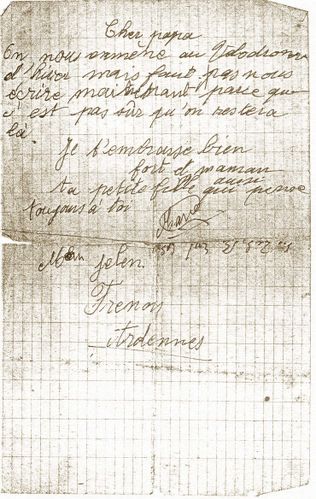 Cher papa
On nous enmène au Vélodrome
d'hiver mais faut pas nous
écrire maintenant parce que
s'est pas sûr qu'on restera
là.
Je t'embrasse bien
fort et maman
aussi
ta petite fille qui pense
toujours à toi
Jelen
Frenoy
Ardennes